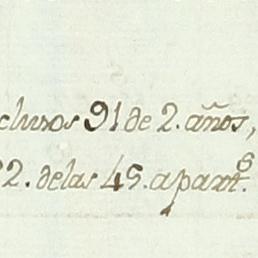 clusos 91 de 2. años,
2. delas 45. apart.s